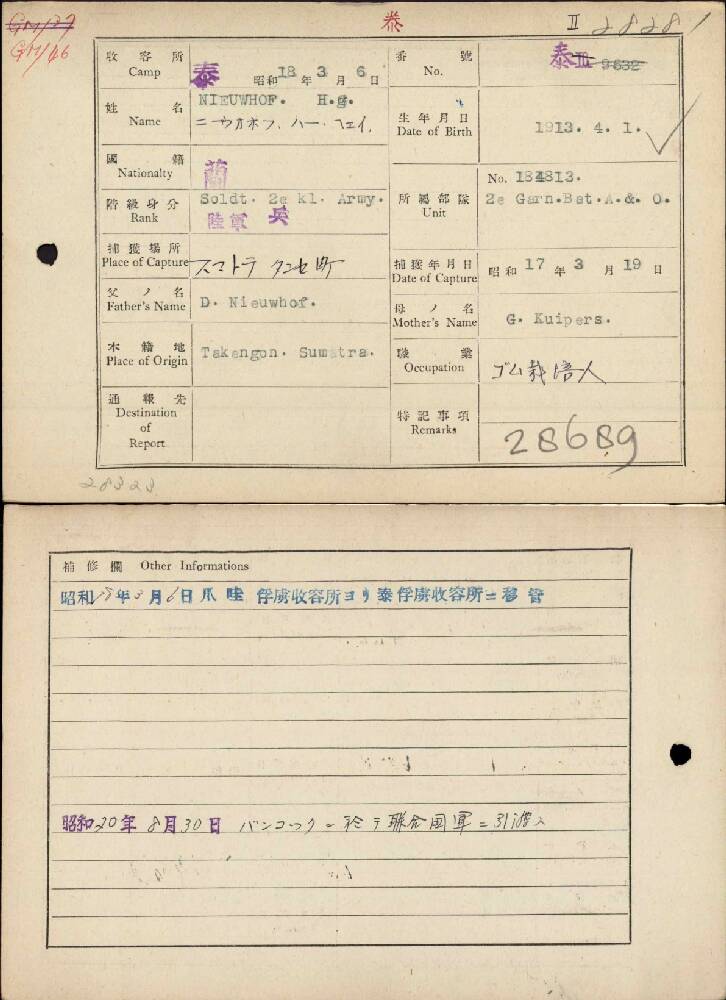 GM/27
GM/46
泰
II 28281
收容所
Camp
泰
昭和18年3月6日
番號
No.
泰III 9632
姓名
Name
NIEUWHOF. H.g.
ニーウオホフ、ハー・フェイ、
生年月日
Date of Birth
1913. 4. 1.
國籍
Nationalty
蘭
階級身分
Rank
Soldt. 2e kl. Army.
陸軍 兵
所屬部隊
Unit
No. 184813.
2e Garn.Bat.A.&. O.
捕獲場所
Place of Capture
スマトラ タンセ町
捕獲年月日
Date of Capture
昭和17年3月19日
父ノ名
Father's Name
D. Nieuwhof.
母ノ名
Mother's Name
G. Kuipers.
本籍地
Place of Origin
Takengon. Sumatra.
職業
Occupation
ゴム栽培人
通報先
Destination
of
Report
特記事項
Remarks
28689
28323
補修欄 Other Informations
昭和18年3月6日爪哇俘虜收容所ヨリ泰俘虜收容所ニ移管
昭和20年8月30日 バンコックニ於テ聯合國軍ニ引渡ス